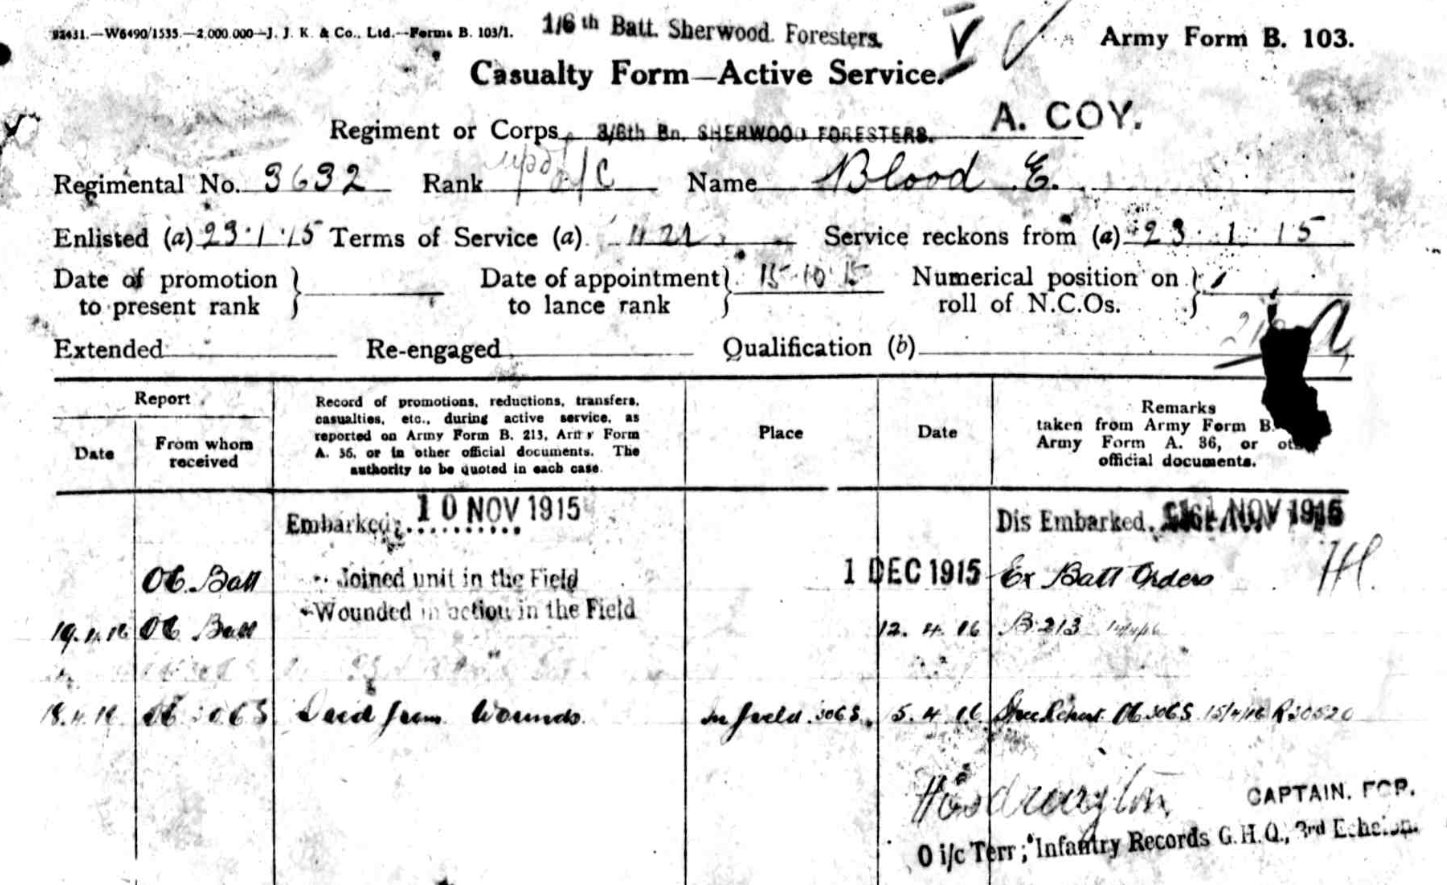 92431.—W6490/1535.—2,000,000—J. J. K. & Co., Ltd.—Forms B. 103/1.
1/6th Batt. Sherwood Foresters.
Army Form B. 103.
Casualty Form—Active Service.
Regiment or Corps 3/6th Bn. SHERWOOD FORESTERS. A. COY.
Regimental No. 3632 Rank L/C Name Blood E.
Enlisted (a) 23.1.15 Terms of Service (a) Service reckons from (a) 23.1.15
Date of promotion to present rank
Date of appointment to lance rank 15-10-15
Numerical position on roll of N.C.Os.
Extended Re-engaged Qualification (b)
Report
Date
From whom received
Record of promotions, reductions, transfers,
casualties, etc., during active service, as
reported on Army Form B. 213, Army Form
A. 36, or in other official documents. The
authority to be quoted in each case.
Place
Date
Remarks
taken from Army Form B.
Army Form A. 36, or
official documents.
Embarked 10 NOV 1915 Dis Embarked NOV 1915
OC Batt Joined unit in the Field 1 DEC 1915 Ex Batt Orders
19.4.16 OC Batt Wounded in action in the Field 12.4.16 B213
18.4.16 Died from Wounds. In field 5.4.16 15/4/16
CAPTAIN. FOR.
O i/c Terr; Infantry Records G.H.Q., 3rd Echelon.